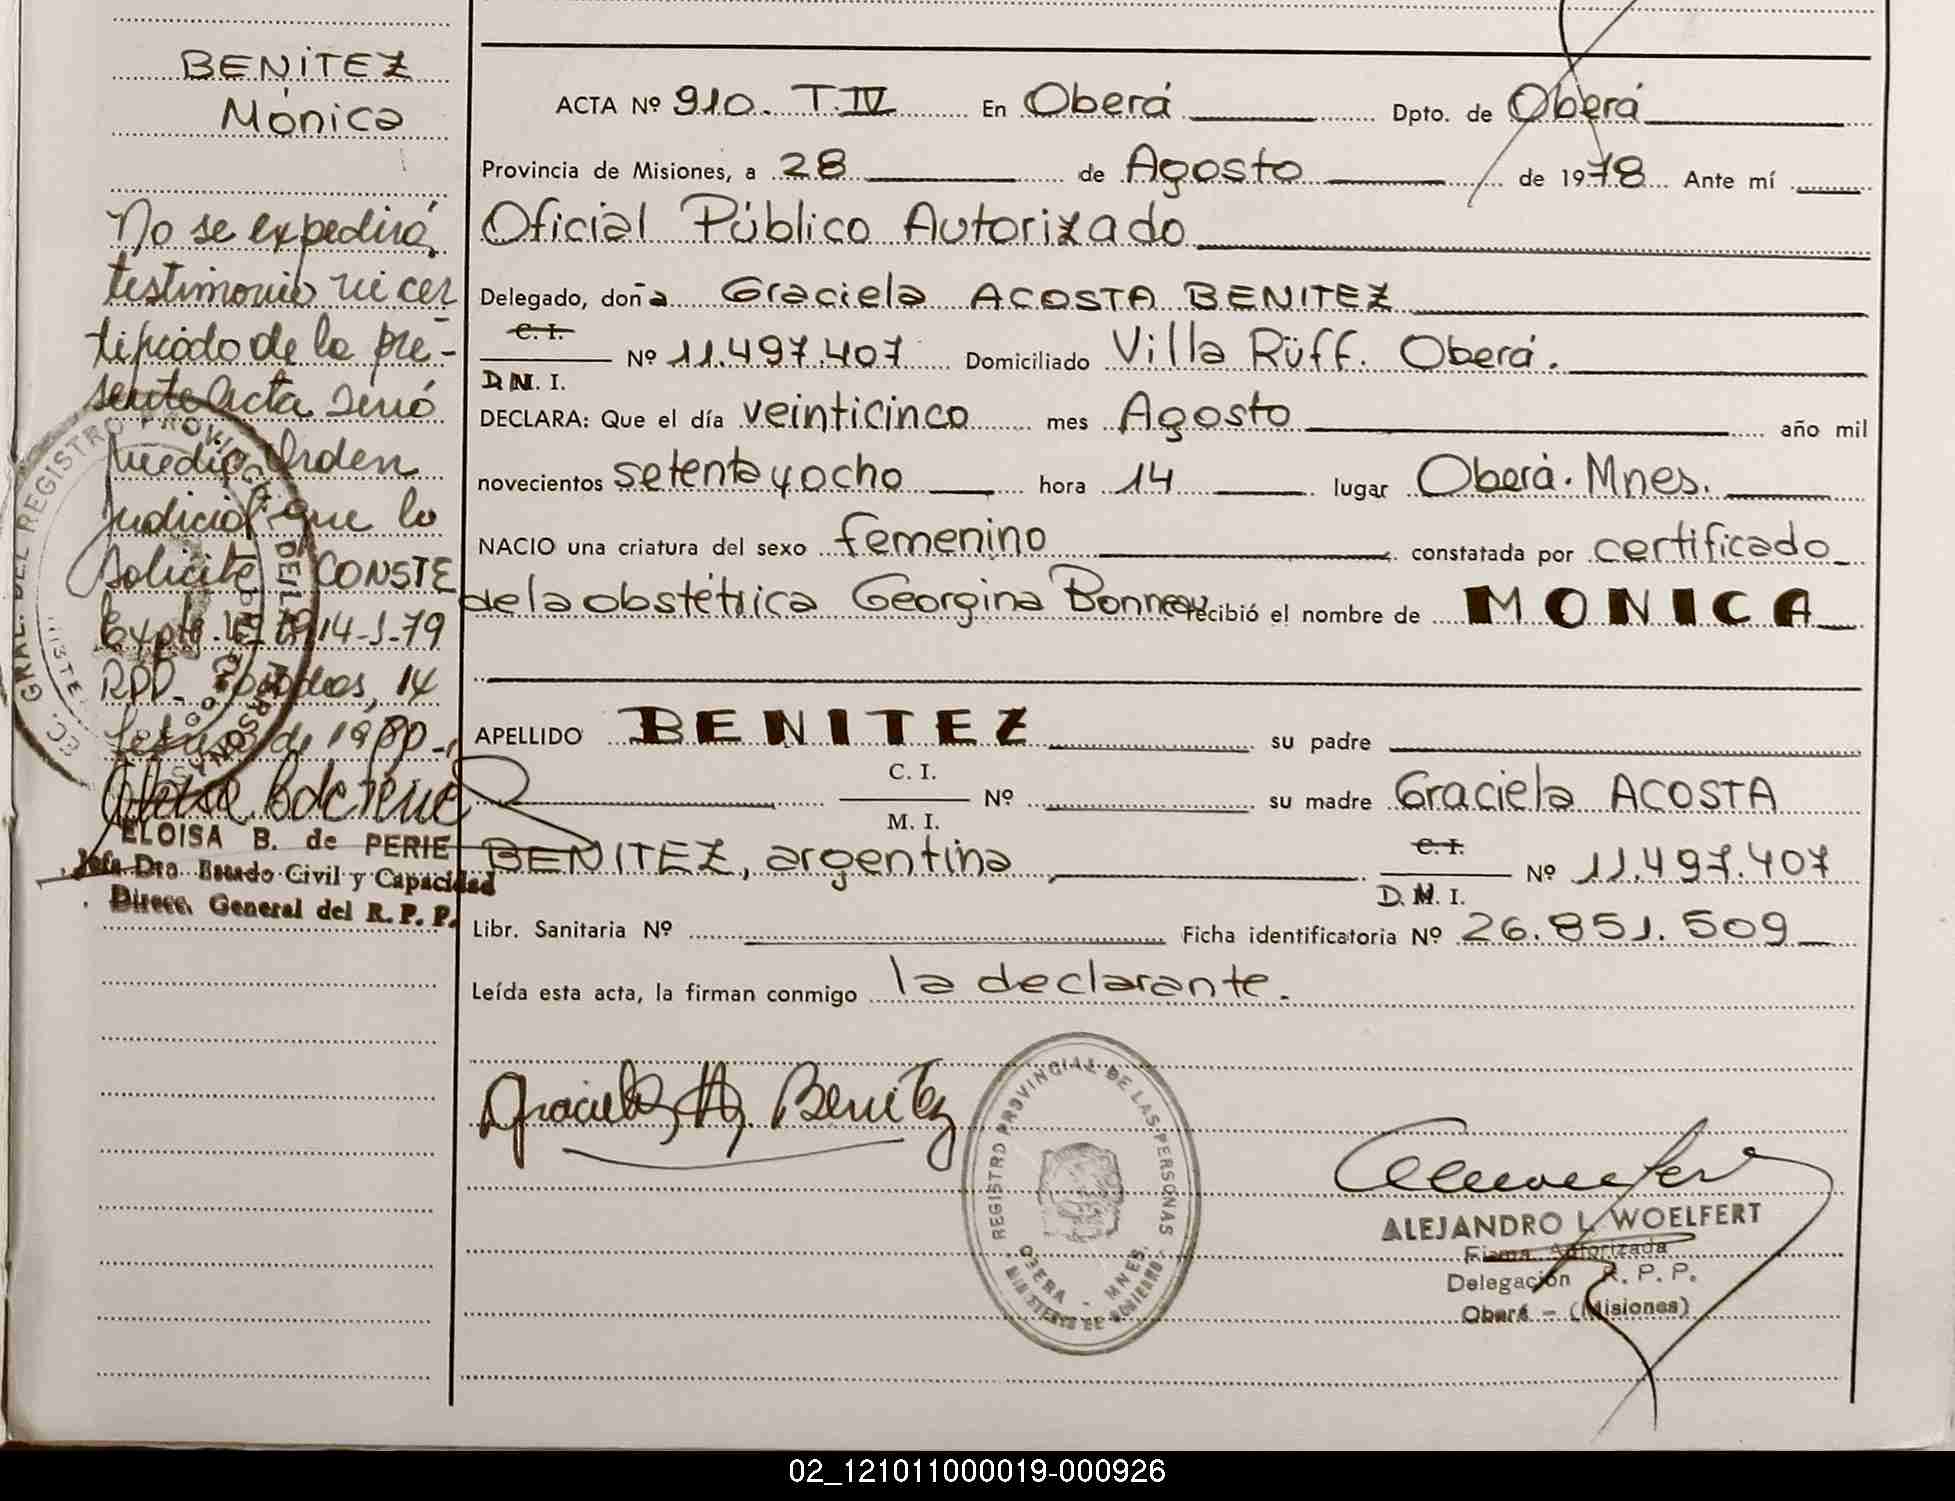 BENITEZ
Mónica
No se expedirá
testimonio ni cer
tificado de la pre-
sente Acta salvo
medie Orden
Judicial que lo
solicite CONSTE
Expte. 14-J-79
RPP. Posadas, 14
de 1980
ELOISA B. de PERIE
Jefa Dto. Estado Civil y Capacidad
Direcc. General del R. P. P.
GRAL. DEL REGISTRO PROVINCIAL DE LAS PERSONAS
ACTA Nº 910. T.IV En Oberá Dpto. de Oberá
Provincia de Misiones, a 28 de Agosto de 1978 Ante mí
Oficial Público Autorizado
Delegado, doña Graciela ACOSTA BENITEZ
C. I.
Nº 11.497.407 Domiciliado Villa Rüff. Oberá.
D.N. I.
DECLARA: Que el día veinticinco mes Agosto año mil
novecientos setenta y ocho hora 14 lugar Oberá. Mnes.
NACIO una criatura del sexo femenino constatada por certificado
de la obstétrica Georgina Bonneau recibió el nombre de MONICA
APELLIDO BENITEZ su padre
C. I.
Nº su madre Graciela ACOSTA
M. I.
BENITEZ, argentina C. I. Nº 11.497.407
D.N. I.
Libr. Sanitaria Nº Ficha identificatoria Nº 26.851.509
Leída esta acta, la firman conmigo la declarante.
Graciela A. Benitez
REGISTRO PROVINCIAL DE LAS PERSONAS
OBERA - MNES.
MINISTERIO DE GOBIERNO
ALEJANDRO L. WOELFERT
Firma Autorizada
Delegación R. P. P.
Oberá - (Misiones)
02_121011000019-000926